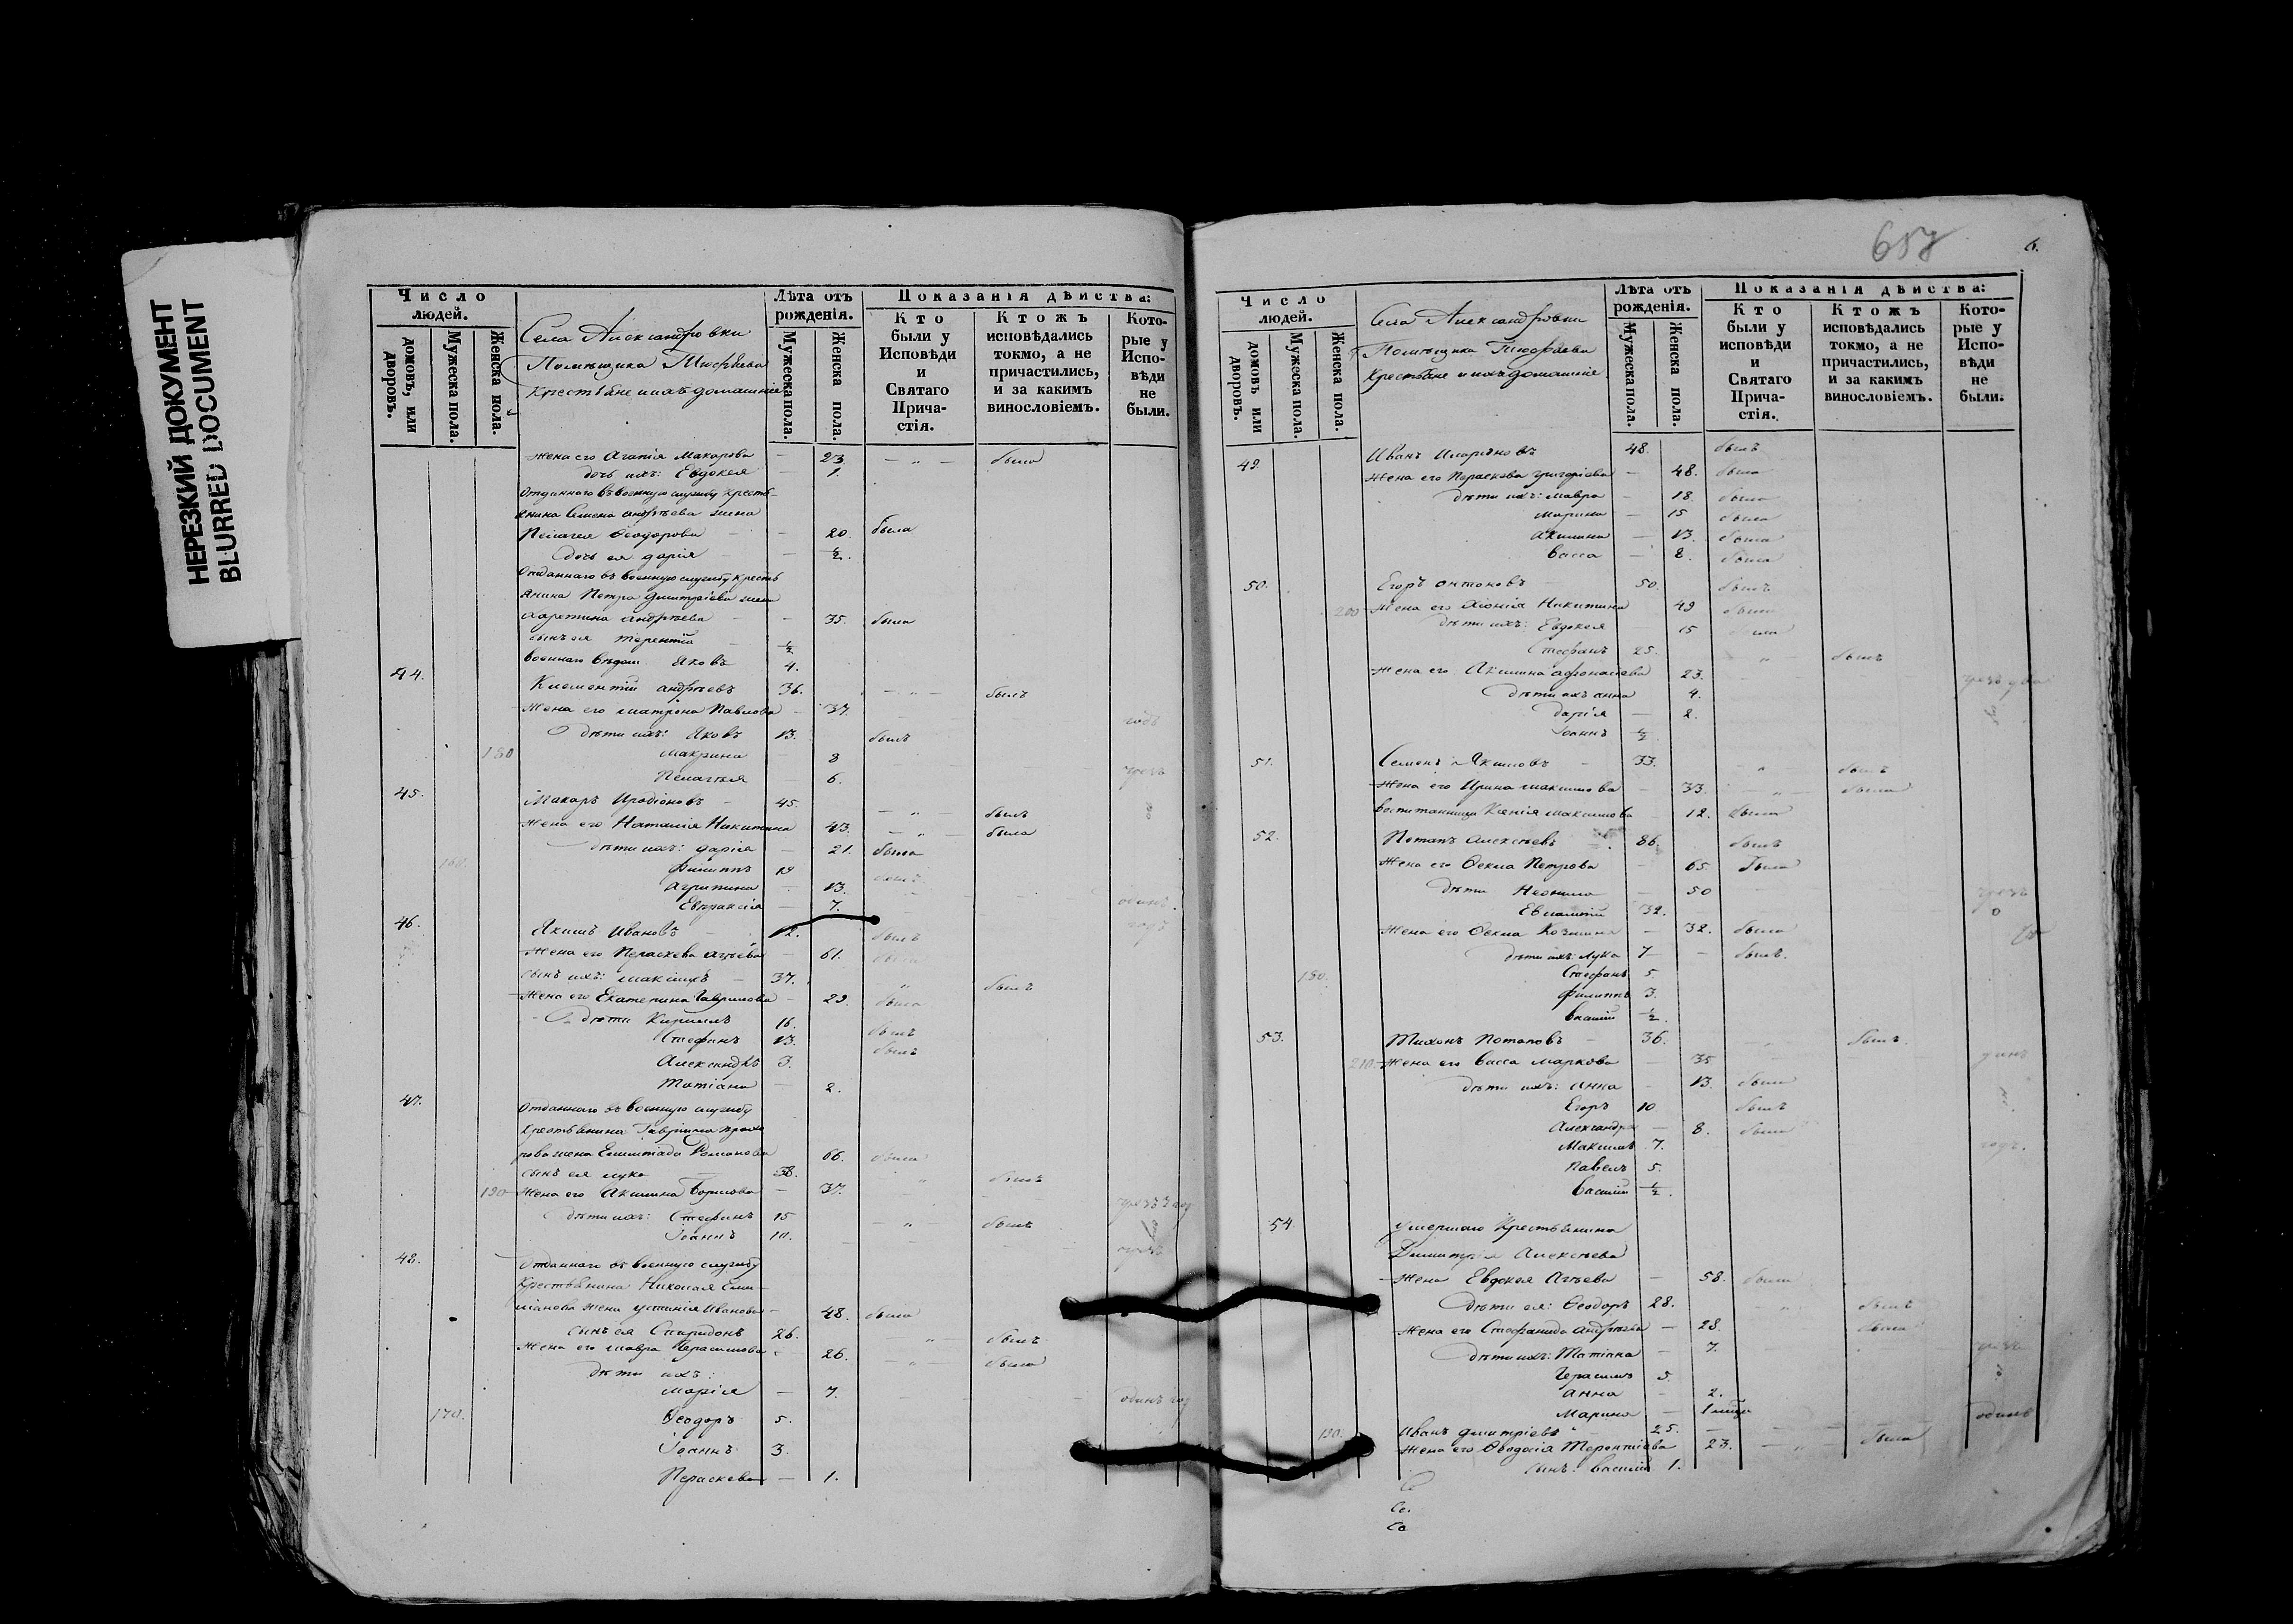 НЕРЕЗКИЙ ДОКУМЕНТ
BLURRED DOCUMENT
Число людей.
домовъ, или дворовъ.
Мужеска пола.
Женска пола.
Села Александровки
Помѣщика
Крестьяне и ихъ домашніе
Лѣта отъ рожденія.
Мужеска пола.
Женска пола.
Показанія дѣйства:
Кто были у Исповѣди и Святаго Прича-стія.
Ктожъ исповѣдались токмо, а не причастились, и за какимъ винословіемъ.
Кото-рые у Испо-вѣди не были.
жена его Агапія Макарова — 23. — „ — была
дочь ихъ: Евдокея 1.
Отданнаго въ военную службу кресть-
янина Семена Андрѣева жена
Пелагея Ѳеодорова — — 20. была
дочь ея Дарія — ½.
Отданнаго въ военную службу кресть
янина Петра Димитріева жена
Андрѣева — — 35. была
сынъ ея Терентій ½
военнаго вѣдом. Яковъ 4.
44. Климентій Андрѣевъ 36. — „ — былъ
Жена его Матрона Павлова — 37. годъ
дѣти ихъ: Яковъ 13. былъ
180 Макрина 8
Пелагѣя 6. чрезъ
45. Макаръ Иродіоновъ 45. — „ — былъ
Жена его Наталія Никитина 43. — „ — была
160. дѣти ихъ: Дарія — 21. была
Филиппъ 19
Агрипина — 13.
Евпраксія — 7. одинъ
46. Якимъ Ивановъ 62. былъ годъ
Жена его Параскева — 61. была
сынъ ихъ: Максимъ 37. „ былъ
Жена его Екатерина Гаврилова — 29. была
дѣти Кириллъ 16. былъ
Стефанъ 13. былъ
Александръ 3.
Татіана — 2.
47. Отданнаго въ военную службу
Крестьянина Гавріила
жена Романова 66. была
сынъ ея Лука 38. „ былъ
190 Жена его Акилина — 37. чрезъ
дѣти ихъ: Стефанъ 15 — „ — былъ
Іоаннъ 10.
48. Отданнаго въ военную службу
Крестьянина Николая Еми-
ліанова жена Устинія Иванова — 48. была
сынъ ея Спиридонъ 26. „ былъ
Жена его Мавра Герасимова — 26. — „ — была
дѣти ихъ:
Марія — 7. одинъ
170. Ѳеодоръ 5.
Іоаннъ 3.
Параскева — 1.
6.
Число людей.
домовъ или дворовъ.
Мужеска пола.
Женска пола.
Села Александровки
Помѣщика
Крестьяне и ихъ домашніе.
Лѣта отъ рожденія.
Мужеска пола.
Женска пола.
Показанія дѣйства:
Кто были у исповѣди и Святаго Прича-стія.
Ктожъ исповѣдались токмо, а не причастились, и за какимъ винословіемъ.
Кото-рые у Испо-вѣди не были.
49. Иванъ Иларіоновъ 48. былъ
Жена его Параскева Григоріева — 48. была
дѣти ихъ: Мавра — 18. была
Марина — 15 была
Акилина — 13. была
Васса — 8. была
50. Егоръ Антоновъ 50. былъ
200 Жена его Никитина 49 была
дѣти ихъ: Евдокея 15 была
Стефанъ 25. „ былъ
Жена его Акилина Афонасіева 23. чрезъ два
дѣти ихъ Анна 4.
Дарія — 2.
Іоаннъ ½.
51. Семенъ Якимовъ 33. „ былъ
Жена его Ирина Максимова — 33. — „ — была
Воспитанница Ксенія Максимова 12. была
52. Потапъ Алексѣевъ 86. былъ
Жена его Ѳекла Петрова 65. была
дѣти Неонила — 50 чрезъ
Евлампій 32.
Жена его Ѳекла Козмина — 32. была
дѣти ихъ: Лука 7 — былъ.
180. Стефанъ 5.
Филиппъ 3.
Василій ½.
53. Тихонъ Потаповъ 36. „ былъ.
210 Жена его Васса Маркова 35
дѣти ихъ: Анна — 13. была
Егоръ 10 былъ
Александра — 8. была
Максимъ 7. годъ.
Павелъ 5.
Василій ½.
54 Умершаго Крестьянина
Димитрія Алексѣева
Жена Евдокея — 58. была
дѣти ея: Ѳеодоръ 28. „ былъ
Жена его Стефанида Андрѣева — 28. была
дѣти ихъ: Татіана — 7. чрезъ
Герасимъ 5.
Анна — 2.
Марина — 1 одинъ
190. Иванъ Дмитріевъ 25.
Жена его Ѳеодосія Терентіева 23. — „ — была
сынъ: Василій 1.